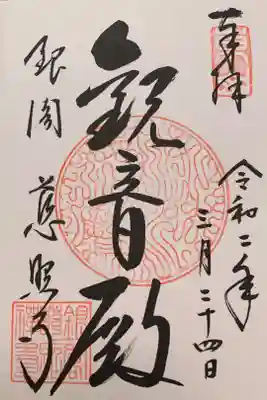 奉拝
令和二年
三月二十四日
観音殿
銀閣
慈照寺